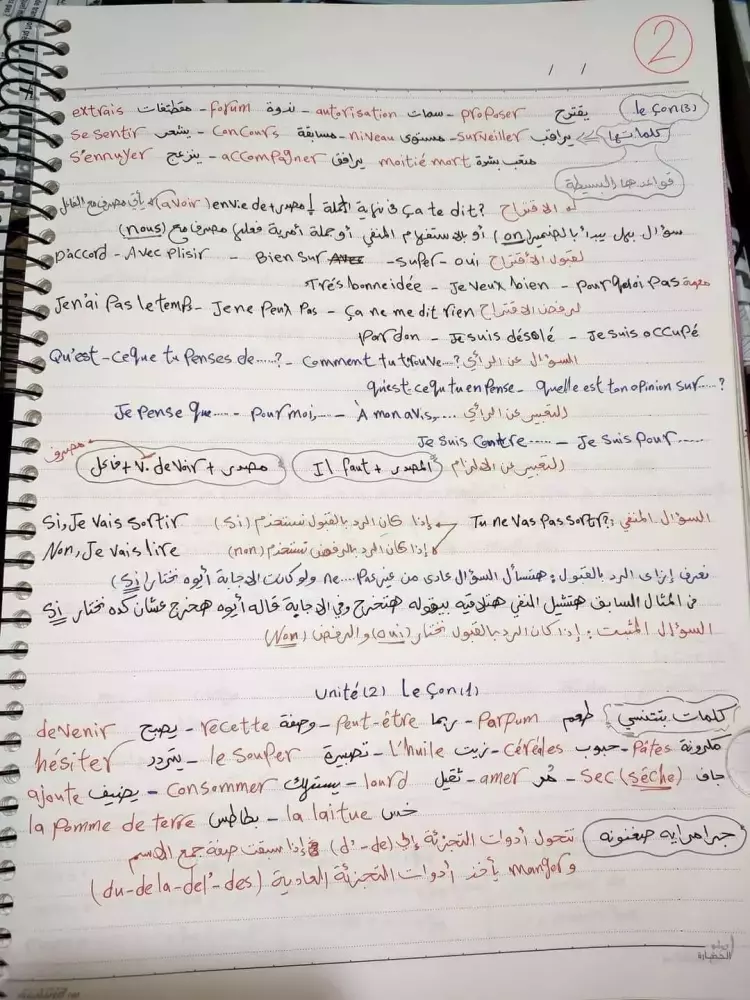 2
/ /
le çon(3) يقترح proposer - سمات autorisation - ندوة forum - مقتطفات extrais
كلماتها يراقب surveiller - مستوى niveau - مسابقة concours - يشعر se sentir
متعب بشدة moitié mort يرافق accompagner - ينزعج s'ennuyer
قواعدها البسيطة
الاقتراح ça te dit? في نهاية الجملة / مصدر + envie de (avoir) يأتي مصرف مع الفاعل
سؤال يبدأ بالضمير (on) أو بالاستفهام المنفي أو جملة أمرية فعلها مصرف مع (nous)
لقبول الاقتراح oui - super - Bien sur - Avec plisir - D'accord
Pourquoi pas - Je veux bien - Très bonne idée
لرفض الاقتراح ça ne me dit rien - Je ne peux pas - Je n'ai pas le temps
Je suis occupé - Je suis désolé - Pardon
السؤال عن الرأي Comment tu trouve....? - Qu'est-ce que tu penses de.....?
quelle est ton opinion sur.....? - qu'est-cequ tu en pense
التعبير عن الرأي À mon avis,.... - Pour moi,..... - Je pense que.....
Je suis pour...... - Je suis contre.....
التعبير عن الالزام المصدر + Il faut مصدر + v. devoir + فاعل مصرف
السؤال المنفي: Tu ne vas pas sortir? إذا كان الرد بالقبول نستخدم (si) Si, Je vais sortir
إذا كان الرد بالرفض نستخدم (non) Non, Je vais lire
نعرف إزاى الرد بالقبول: هتسأل السؤال عادى من غير ne....pas ولو كانت الاجابة أيوه نختار (Si)
فى المثال السابق هنشيل النفي هنلاقيه بيقوله هتخرج وفي الاجابة قاله أيوه هخرج عشان كده نختار Si
السؤال المثبت: إذا كان الرد بالقبول نختار (oui) والرفض (Non)
unité(2) Le çon(1)
كلمات بتتنسي طعم parpum - ربما peut-être - وصفة recette - يصبح devenir
مكرونة Pâtes - حبوب céréales - زيت l'huile - تصبيرة le souper - يتردد hésiter
جاف sec (séche) - مُر amer - ثقيل lourd - يستهلك consommer - يضيف ajoute
خس la laitue - بطاطس la pomme de terre
جرامرايه صغنونه تتحول أدوات التجزئة إلى (d' - de) إذا سبقت صفة جمع الاسم
و manger يأخذ أدوات التجزئة العادية (du - de la - del' - des)